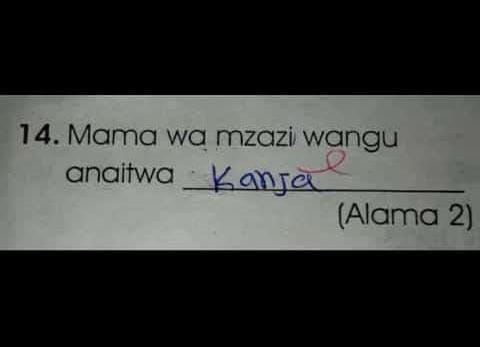 14. Mama wa mzazi wangu
anaitwa Kanja
(Alama 2)